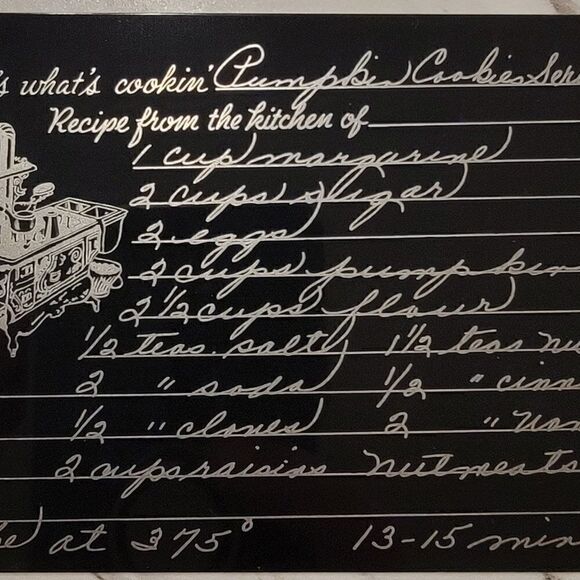 's what's cookin' Pumpkin Cookies Ser
Recipe from the kitchen of
1 cup margarine
2 cups sugar
2 eggs
2 cups pumpkin
2 1/2 cups flour
1/2 teas. salt 1 1/2 teas nu
2 " soda 1/2 " cinn
1/2 " cloves 2 " Van
2 cups raisins nutmeats
at 375° 13-15 min